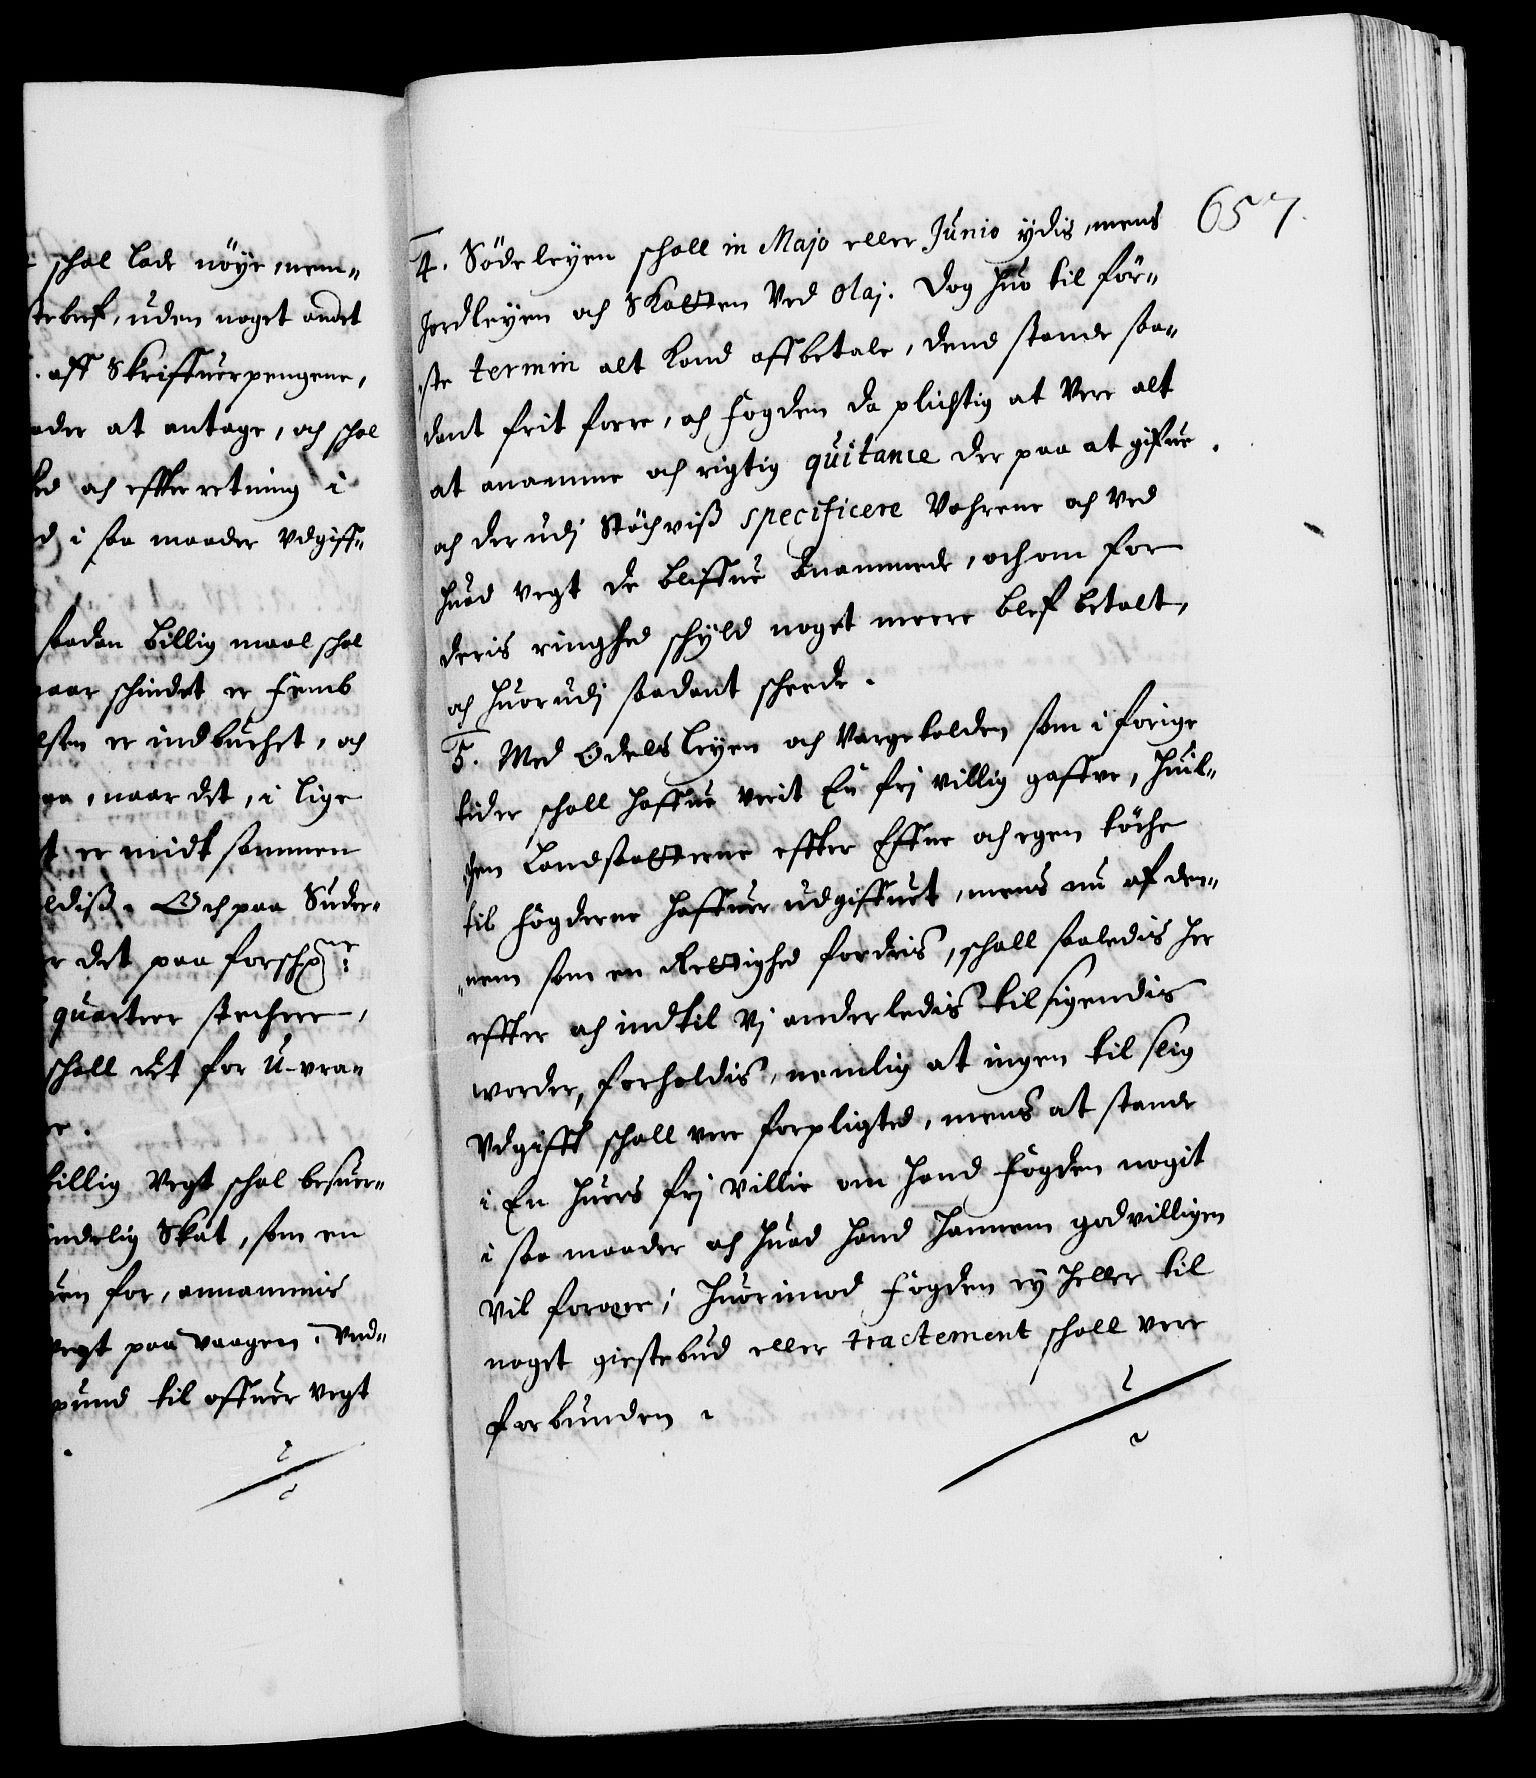 schal lade nöye, nem-
tebref, uden noget andet
aff Skriffuerpengene,
ader at antage, och schal
ed och effterretning i
d i saa maader Vdgiff-
saadan billig maal schal
naar schindet er femb
lsten er indbuchet, och
naar det, i lige
t er midt sammen
eldiß. Och paa Suder-
er det paa forschne:
quarteer stechere,
schall det for U-vra-
er.
billig Vegt schal besuer-
indelig Skat, som en
uen for, annammis
vegt paa vaagen. Vnd-
pund til offuer Vegt
657.
4. Söde leyen schall in Majo eller Junio ydis, mens
Jordleyen och Skatten Ved Olaj. Dog huo til för-
ste termin alt kand affbetale, dend stande saa-
dant frit forre, och fogden da plichtig at Vere alt
at anamme och rigtig quitance der paa at gifue.
och der udj Stöchviß specificere Vahrene och Ved
huad Vegt de bliffue Anammede, och om for
deris ringhed schyld noget meere blef betalt,
och huorudj saadant scheede.
5. Med Odels leyen och Vargetolden som i forige
tider schall haffue verit En frj villig gaffve, huil-
chen Landsaatterne effter Effne och egen töche
til fögderne haffuer udgiffuet, mens nu af den-
nem som en Rettighed fordris, schall saaledis her
effter och indtil Vj anderledis tilsigendis
worder, forholdis, nemlig at ingen til slig
Vdgifft schall vere forpligted, mens at stande
i En huers frj Villie om hand fögden nogit
i saa maader och huad hand hannem godvilligen
vil forære; huorimod fögden ey heller til
noget giestebud eller tractement schall vere
forbunden.